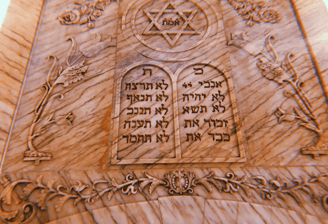 אמת
כ ת
אנכי יי
לא יהיה
לא תשא
זכור את
כבד את
לא תרצח
לא תנאף
לא תגנב
לא תענה
לא תחמד